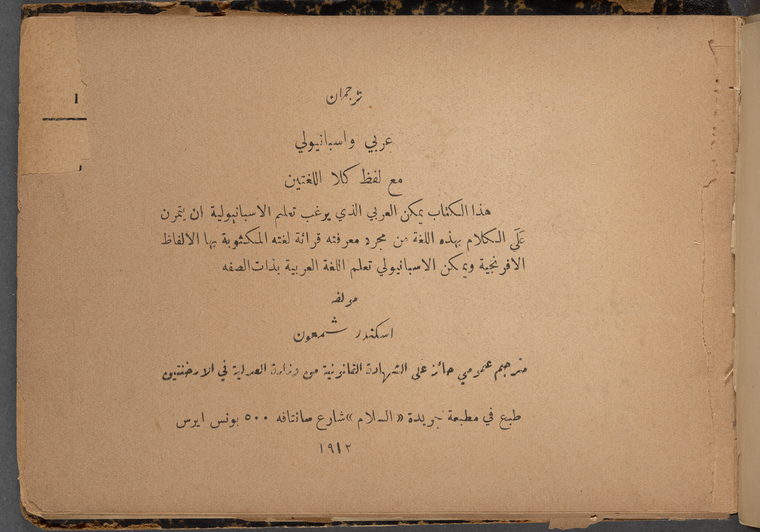 ترجمان
عربي واسبانيولي
مع لفظ كلا اللغتين
هذا الكتاب يمكن العربي الذي يرغب تعلم الاسبانيولية ان يتمرن
على الكلام بهذه اللغة من مجرد معرفته قرائة لغته المكتوبة بها الالفاظ
الافرنجية ويمكن الاسبانيولي تعلم اللغة العربية بذات الصفه
مولفه
اسكندر شمعون
مترجم عمومي حائز على الشهادة القانونية من وزارة العدلية في الارضنتين
طبع في مطبعة جريدة «السلام» شارع صانتافه ٥٠٠ بونس ايرس
١٩١٢